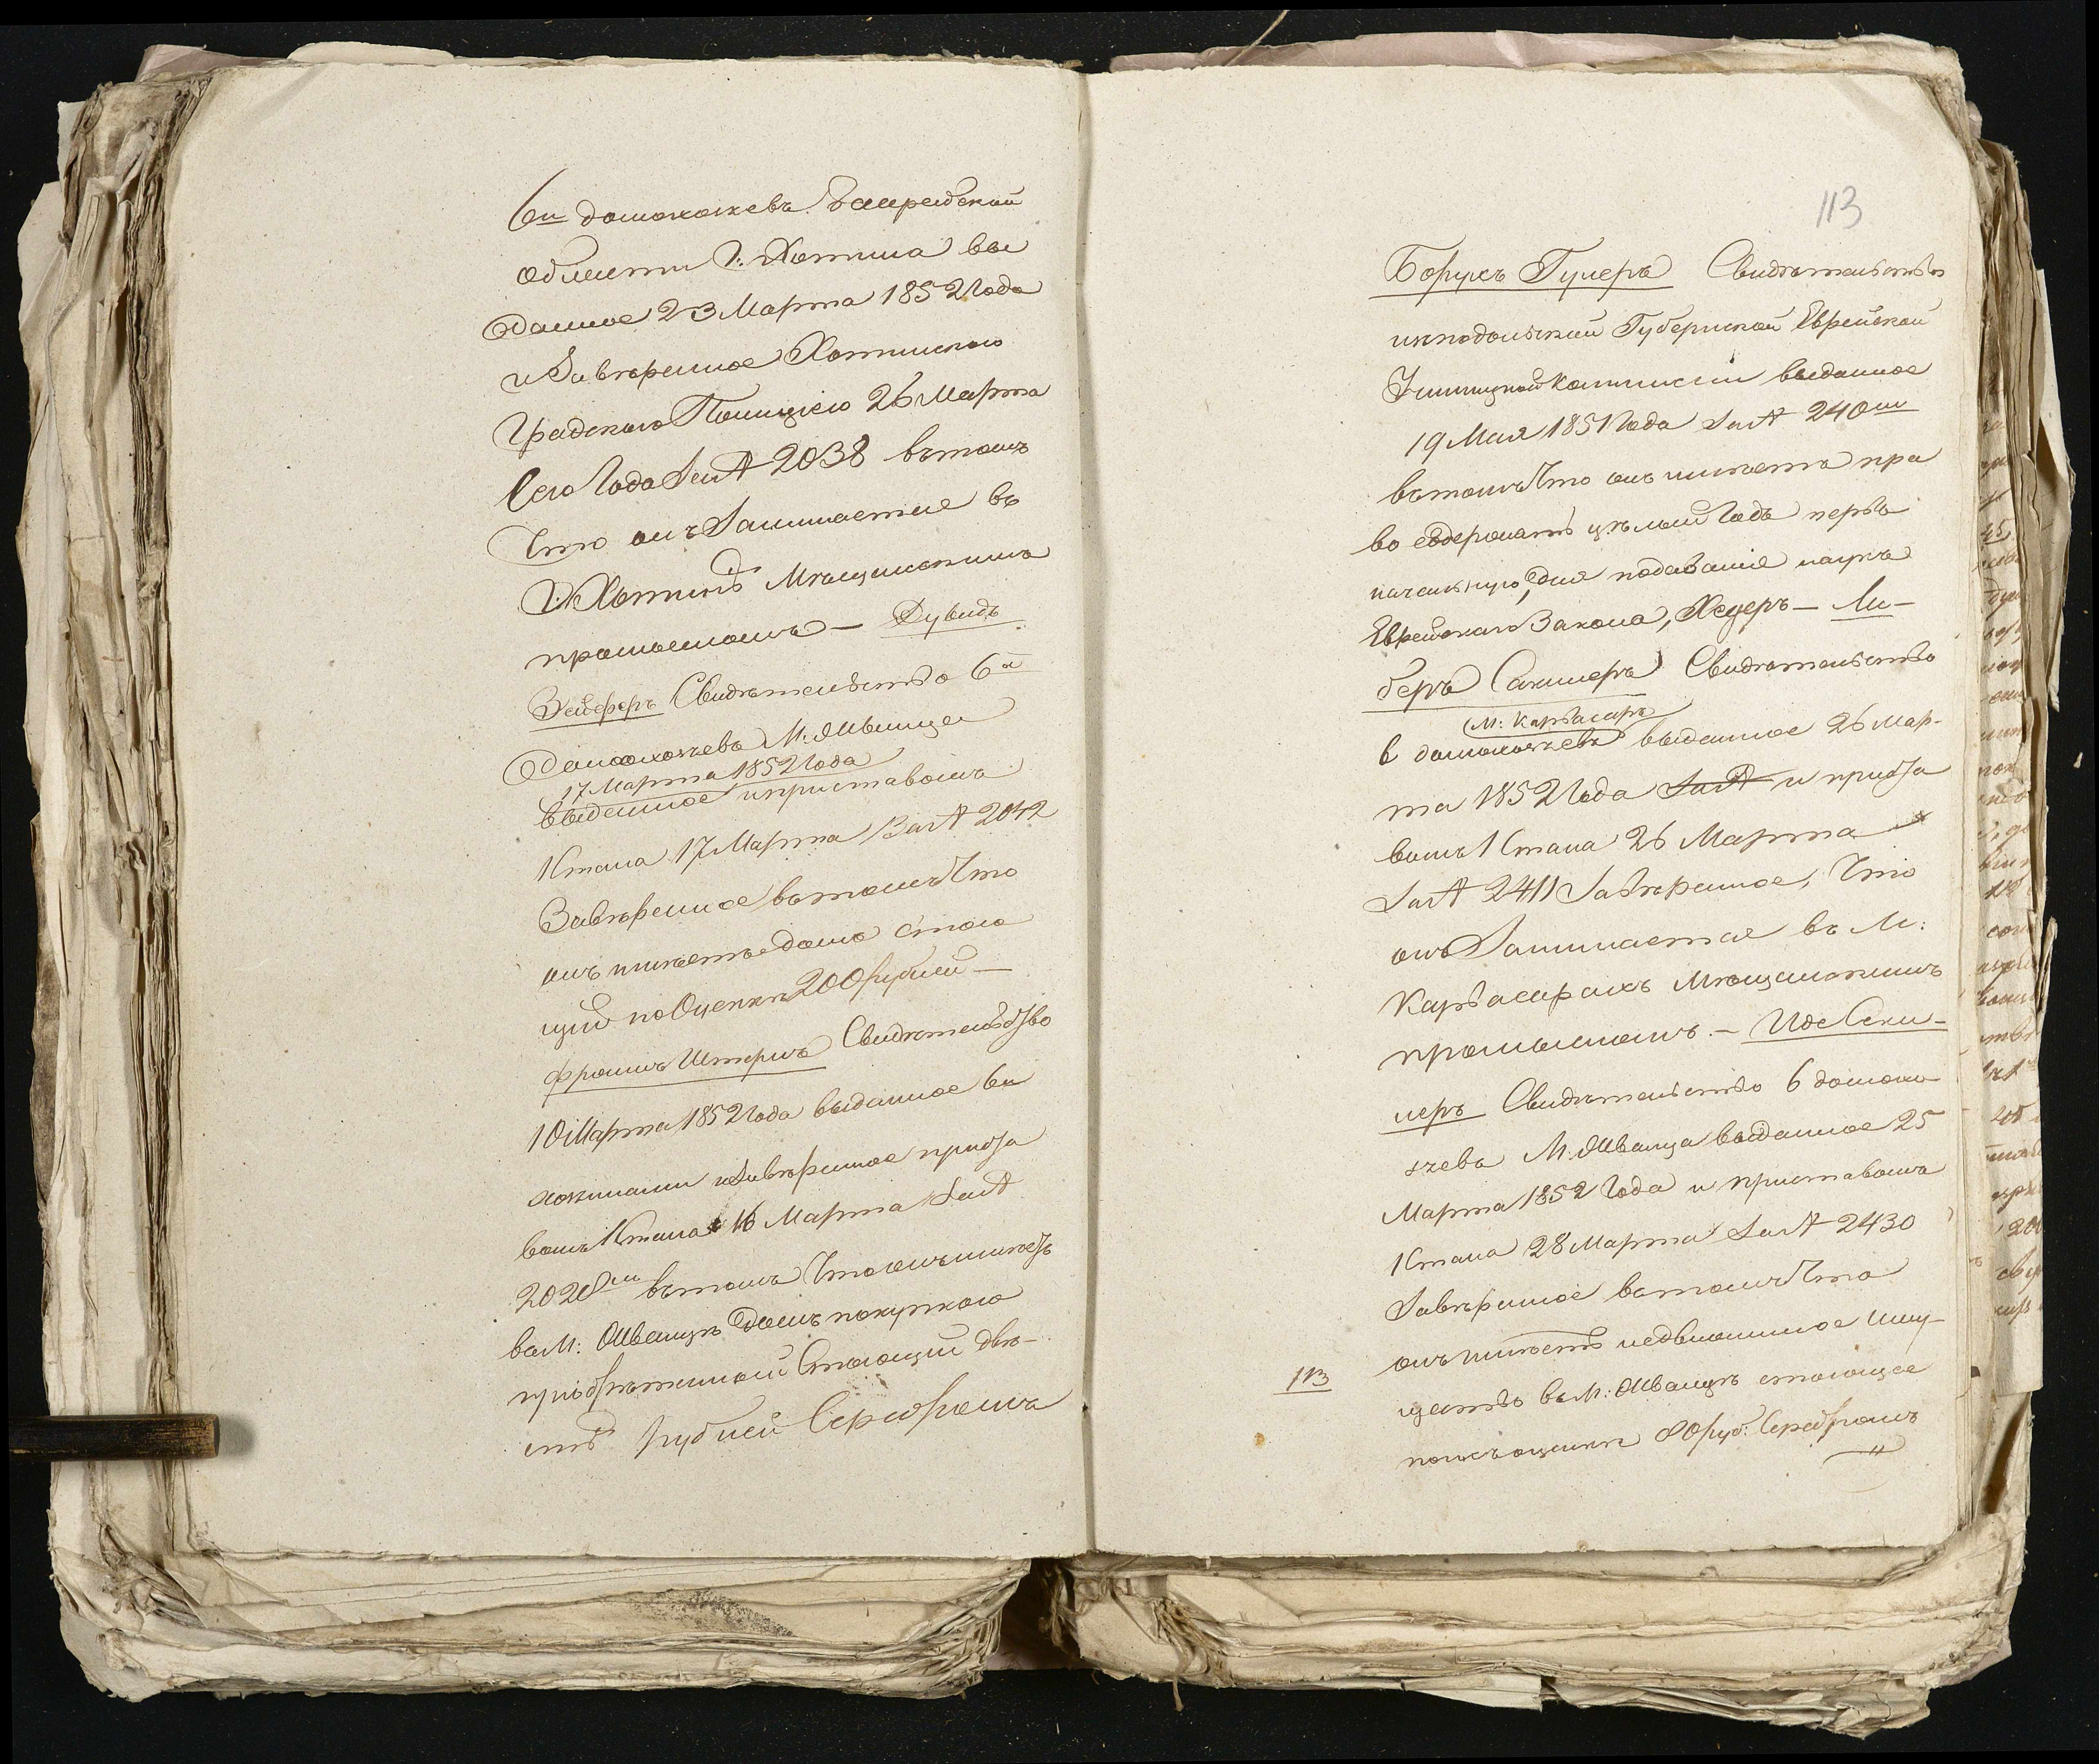 6ти домохозяевъ Бессарабской
Области Г. Хотина вы
данное 23 Марта 1852 Года
и Завѣренное Хотинскою
Градскою Полиціею 26 Марта
Сего Года За № 2038 въ томъ
Что онъ Занимается въ
Г. Хотинѣ Мѣщанскимъ
промысломъ — Дувидъ
Зейферъ Свидѣтельство 6ти
домохозяевъ М. Жванца
17 Марта 1852 Года
выданное и приставомъ
1 Стана 17 Марта За № 2042
Завѣренное въ томъ Что
онъ имѣетъ домъ стою
щій по Оценкѣ 200 рублей —
Фроимъ Штернъ Свидѣтельство
10 Марта 1852 Года выданное 6ю
хозяевами и Завѣренное приста
вомъ 1 Стана 16 Марта За №
2028мъ въ томъ Что онъ имѣетъ
въ М: Жванцѣ домъ покупкою
пріобрѣтенный Стоющій двѣ-
стѣ рублей Серебромъ
113
Борухъ Гулеръ Свидѣтельство
изъ подольской Губернской Еврейской
Училищной Коммисіи выданное
19 Мая 1851 Года За № 240мъ
въ томъ Что онъ имѣетъ пра
во содержать цѣлый Годъ перво
начальную, для подаванія наукъ
Еврейскаго Закона, Хедеръ — Ли-
беръ Сакнеръ Свидѣтельство
М: Карвасаръ
6 домохозяевъ выданное 26 Мар-
та 1852 Года За № и приста
вомъ 1 Стана 26 Марта
За № 2411 Завѣренное, Что
онъ Занимается въ М:
Карвасарахъ Мѣщанскимъ
промысломъ. —
леръ Свидѣтельство 6 домохо
зяевъ М. Жванца выданное 25
Марта 1852 Года и приставомъ
1 Стана 28 Марта За № 2430
Завѣренное въ томъ Что
онъ имѣетъ недвижимое Иму-
113
щество въ М: Жванцѣ стоющее
по оценкѣ 80 руб: Серебромъ